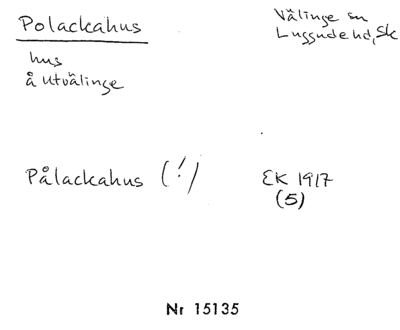 Polackahus
Välinge sn
Luggude hd, Sk
hus
å Utvälinge
Pålackahus (!)
EK 1917
(5)
Nr 15135